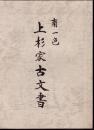 南一色
上杉家古文書